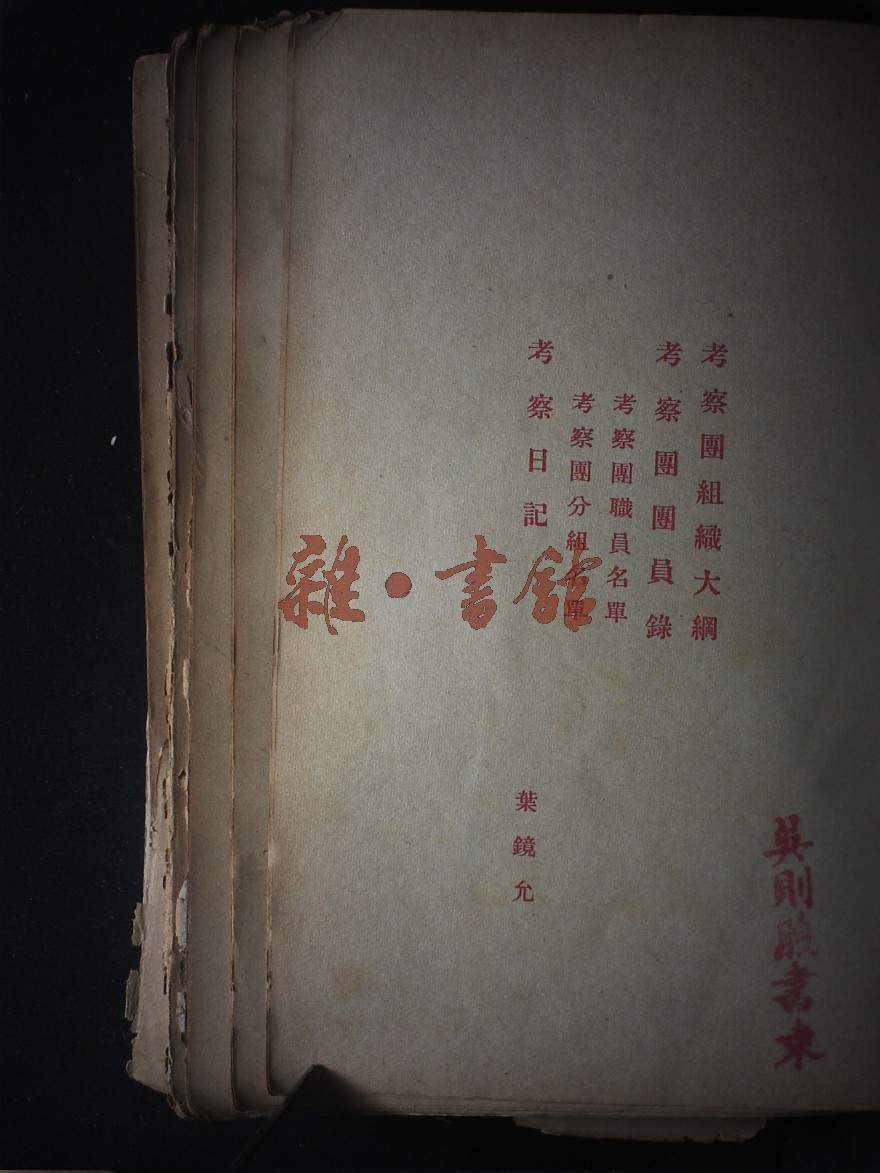 考察團組織大綱
考察團團員錄
考察團職員名單
考察團分組名單
考察日記
葉鏡允
雜·書館
吳則
書柬